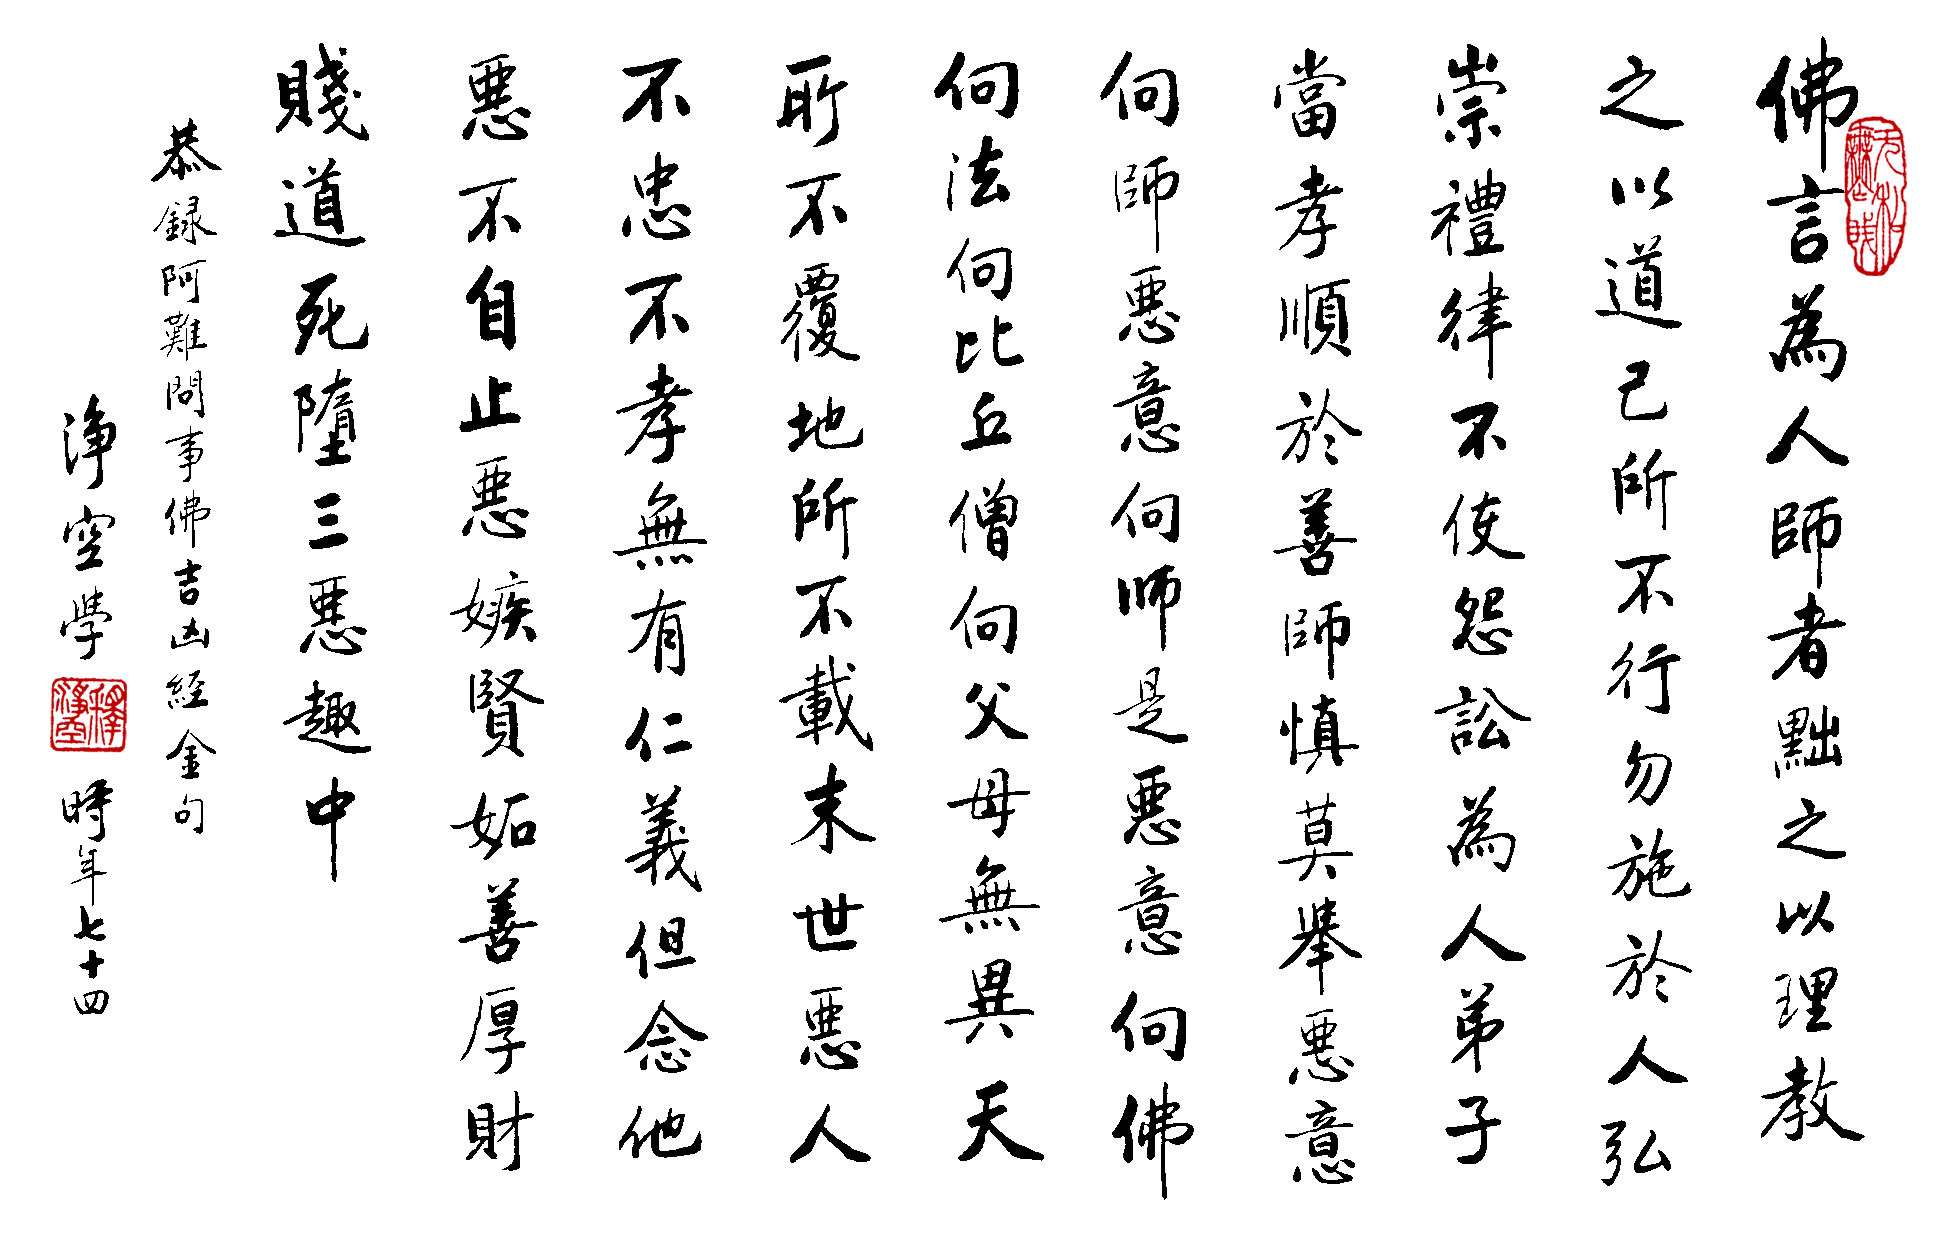 佛言為人師者黜之以理教
之以道己所不行勿施於人弘
崇禮律不使怨訟為人弟子
當孝順於善師慎莫舉惡意
向師惡意向師是惡意向佛
向法向比丘僧向父母無異天
所不覆地所不載末世惡人
不忠不孝無有仁義但念他
惡不自止惡嫉賢妬善厚財
賤道死墮三惡趣中
恭録阿難問事佛吉凶経金句
淨空學
釋淨空
時年七十四